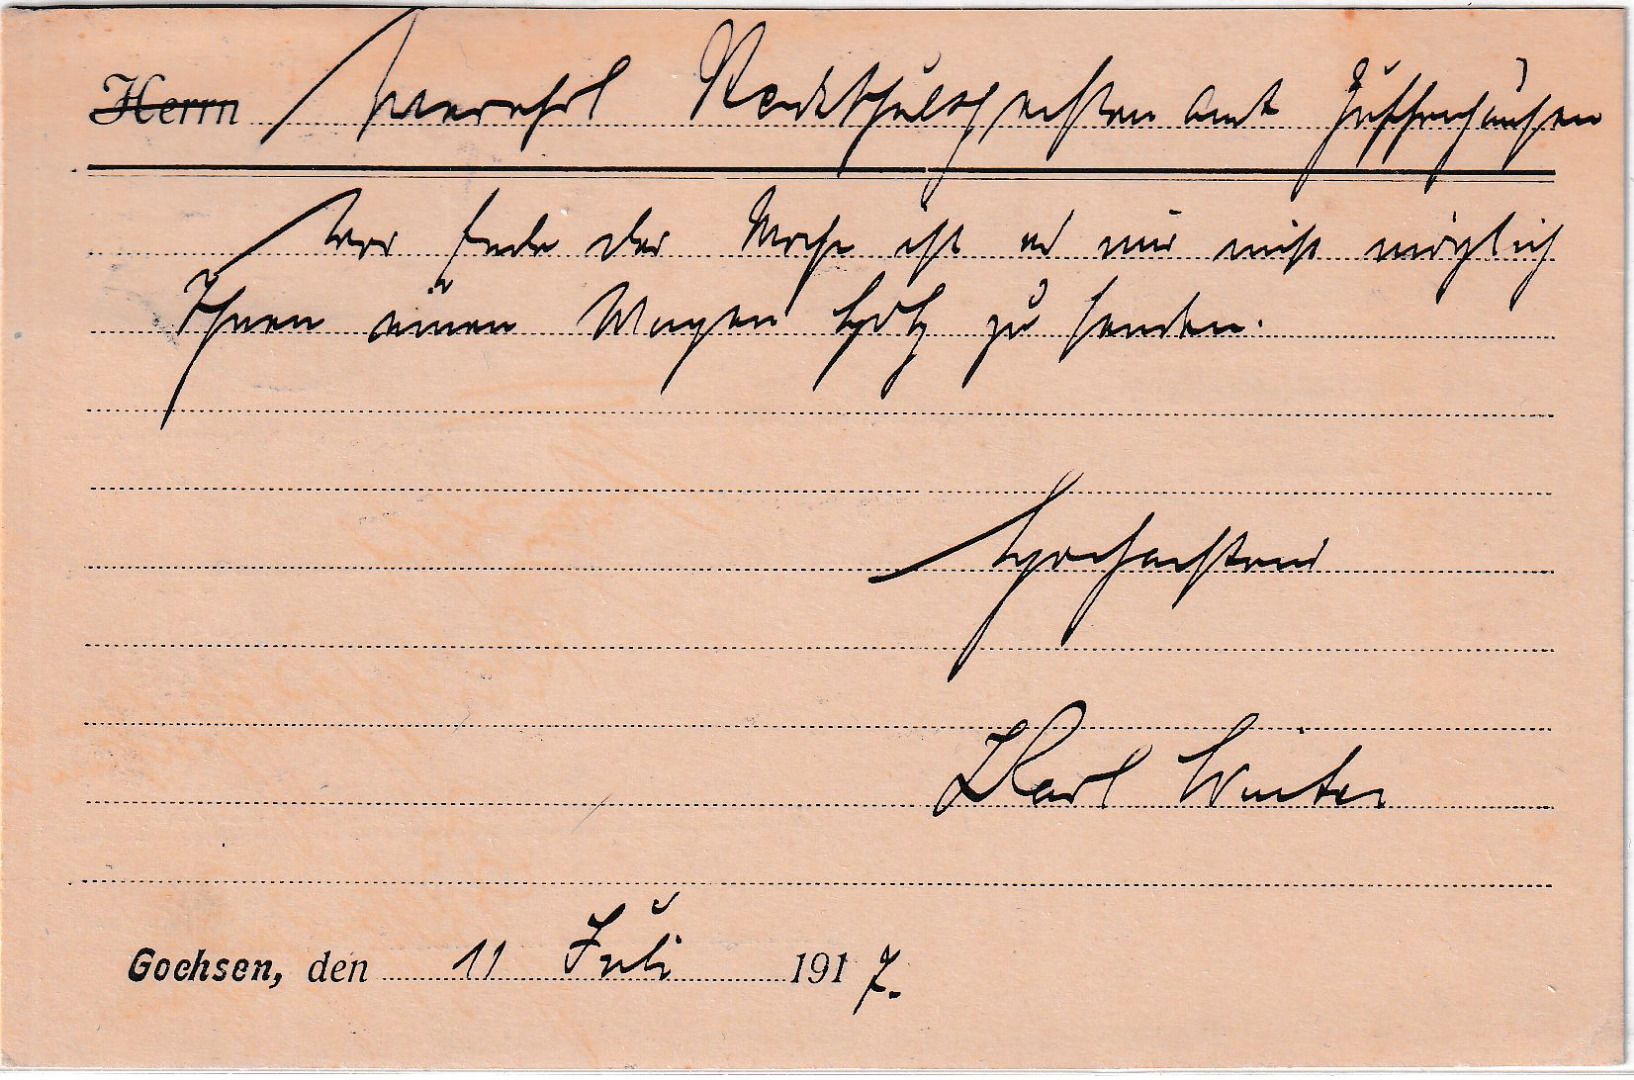 Herrn Verehrl Stadtschultheißenamt Zuffenhausen
Vor Ende der Woche ist es mir nicht möglich
Ihnen einen Wagen Holz zu senden.
Hochachtend
Karl Winter
Gochsen, den 11 Juli 1917.